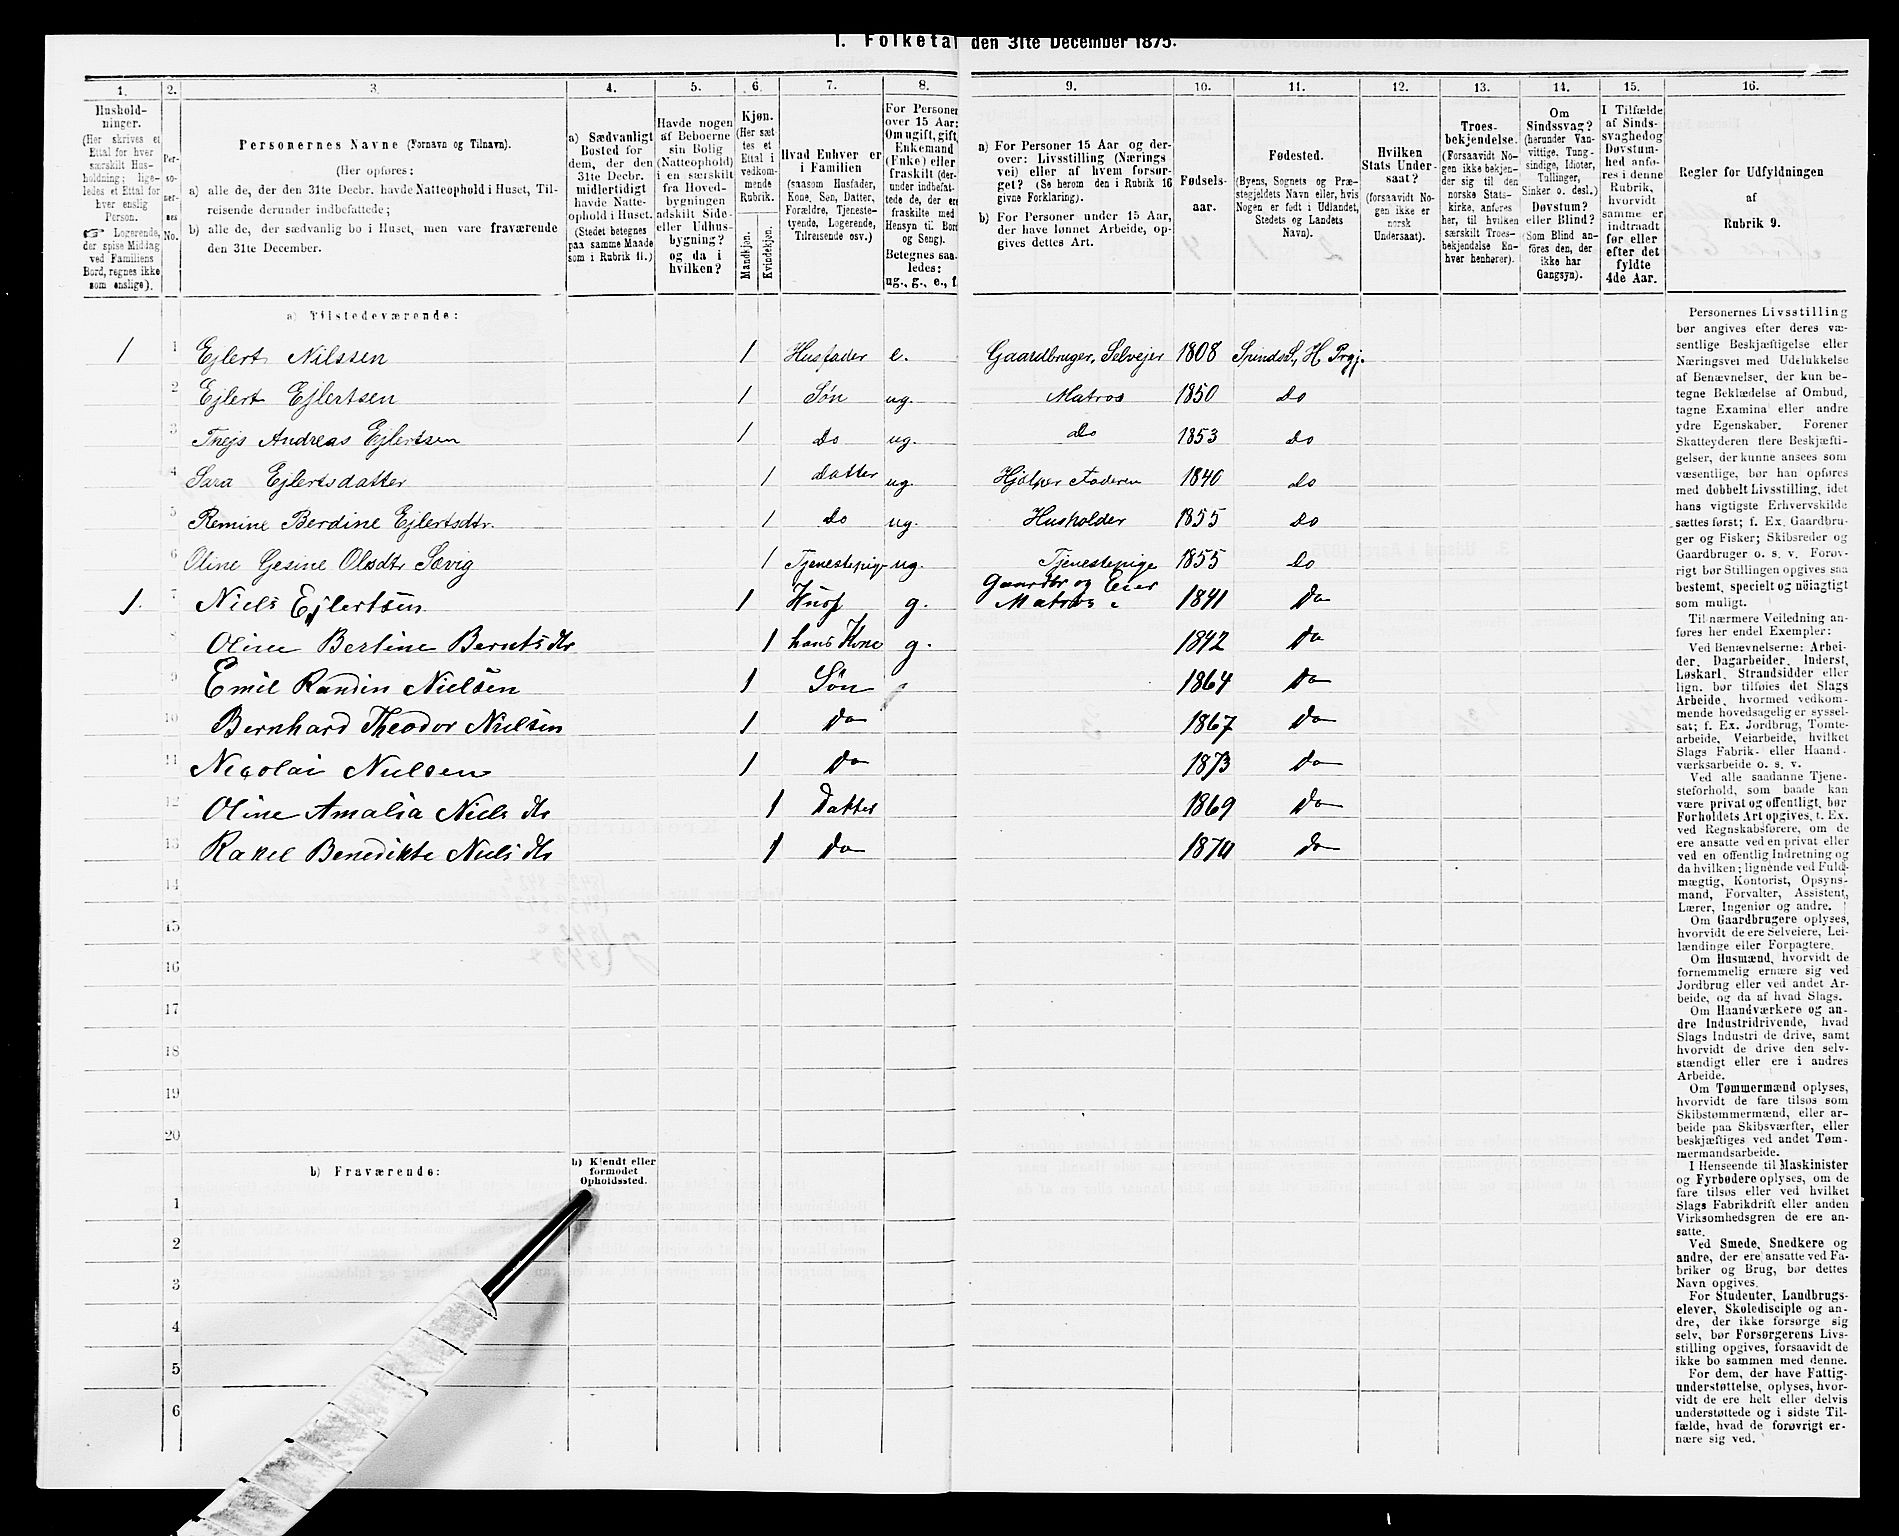 I. Folketal den 31te December 1875.
1. 2. 3. 4. 5. 6. 7. 8. 9. 10. 11. 12. 13. 14. 15. 16.
Hushold-
ninger.
(Her skrives et
Ettal for hver
særskilt Hus-
holdning; lige-
ledes et Ettal for
hver enslig
Person.
☞ Logerende,
der spise Middag
ved Familiens
Bord, regnes ikke
som enslige).
Per-
so-
ner-
nes
No.
Personernes Navne (Fornavn og Tilnavn).
(Her opføres:
a) alle de, der den 31te Decbr. havde Natteophold i Huset, Til-
reisende derunder indbefattede;
b) alle de, der sædvanlig bo i Huset, men vare fraværende
den 31te December.
a) Sædvanligt
Bosted for
dem, der den
31te Decbr.
midlertidigt
havde Natte-
ophold i Huset.
(Stedet betegnes
paa samme Maade
som i Rubrik 11.)
Havde nogen
af Beboerne
sin Bolig
(Natteophold)
i en særskilt
fra Hoved-
bygningen
adskilt Side-
eller Udhus-
bygning?
og da i
hvilken?
Kjøn.
(Her sæt-
tes et
Ettal i
vedkom-
mende
Rubrik.
Mandkjøn.
Kvindekjøn.
Hvad Enhver er
i Familien
(saasom Husfader,
Kone, Søn, Datter,
Forældre, Tjeneste-
tyende, Logerende,
Tilreisende osv.)
For Personer
over 15 Aar:
Om ugift, gift,
Enkemand
(Enke) eller
fraskilt (der-
under indbefat-
tede de, der ere
fraskilte med
Hensyn til Bord
og Seng).
Betegnes saa-
ledes:
ug., g., e., f.
a) For Personer 15 Aar og der-
over: Livsstilling (Nærings
vei) eller af hvem forsør-
get? (Se herom den i Rubrik 16
givne Forklaring).
b) For Personer under 15 Aar,
der have lønnet Arbeide, op-
gives dettes Art.
Fødsels-
aar.
Fødested.
(Byens, Sognets og Præ-
stegjeldets Navn eller, hvis
Nogen er født i Udlandet,
Stedets og Landets
Navn).
Hvilken
Stats Under-
saat?
(forsaavidt No-
gen ikke er
norsk
Undersaat).
Troes-
bekjendelse.
(Forsaavidt No-
gen ikke bekjen-
der sig til den
norske Stats-
kirke, anføres
her, til hvilken
særskilt Troes-
bekjendelse En-
hver henhører).
Om
Sindssvag?
(herunder Van-
vittige, Tung-
sindige, Idioter,
Tullinger,
Sinker o. desl.)
Døvstum?
eller Blind?
(Som Blind an-
føres den, der
ikke har
Gangsyn).
I Tilfælde
af Sinds-
svaghed og
Døvstum-
hed anfø-
res i denne
Rubrik,
hvorvidt
samme er
indtraadt
før eller
efter det
fyldte
4de Aar.
Regler for Udfyldningen
af
Rubrik 9.
a) Tilstedeværende:
1 1 Ejlert Nilssen 1 Husfader e. Gaardbruger, Selvejer 1808 Spinds S., H. Prgj.
2 Ejlert Ejlertsen 1 Søn ug. Matros 1850 Do
3 Thejs Andreas Ejlertsen 1 do ug. do 1853 do
4 Sara Ejlertsdatter 1 datter ug. Hjælper Faderen 1840 do
5 Remine Berdine Ejlertsdtr. 1 do ug. Husholder 1855 do
6 Oline Gesine Olsdtr Sævig 1 Tjenestepige ug. Tjenestepige 1855 do
1. 7 Niels Ejlertsen 1 Husf g. Gaardbr og Eier Matros 1841 Do
8 Oline Bertine Berntsdtr 1 hans Kone g. 1842 Do
9 Emil Randin Nielsen 1 Søn 1864 Do
10 Bernhard Theodor Nielsen 1 Do 1867 Do
11 Nicolai Nielsen 1 Do 1873 Do
12 Oline Amalia Nielsdtr 1 Datter 1869 Do
13 Rakel Benedikte Nielsdtr 1 Do 1871 Do
14
15
16
17
18
19
20
b) Fraværende:
b) Kjendt eller
formodet
Opholdssted.
1
2
3
4
5
6
Personernes Livsstilling
bør angives efter deres væ-
sentlige Beskjæftigelse eller
Næringsvei med Udelukkelse
af Benævnelser, der kun be-
tegne Beklædelse af Ombud,
tagne Examina eller andre
ydre Egenskaber. Forener
Skatteyderen flere Beskjæfti-
gelser, der kunne ansees som
væsentlige, bør han opføres
med dobbelt Livsstilling, idet
hans vigtigste Erhvervskilde
sættes først; f. Ex. Gaardbru-
ger og Fisker; Skibsreder og
Gaardbruger o. s. v. Forøv-
rigt bør Stillingen opgives saa
bestemt, specielt og nöiagtigt
som muligt.
Til nærmere Veiledning an-
føres her endel Exempler:
Ved Benævnelserne: Arbei-
der, Dagarbeider, Inderst,
Løskarl, Strandsidder eller
lign. bør tilføies det Slags
Arbeide, hvormed vedkom-
mende hovedsagelig er syssel-
sat; f. Ex. Jordbrug, Tomte-
arbeide, Veiarbeide, hvilket
Slags Fabrik- eller Haand-
værksarbeide o. s. v.
Ved alle saadanne Tjene-
steforhold, som baade kan
være privat og offentligt, bør
Forholdets Art opgives, t. Ex.
ved Regnskabsførere, om de
ere ansatte ved en privat eller
ved en offentlig Indretning og
da hvilken; lignende ved Fuld-
mægtig, Kontorist, Opsyns-
mand, Forvalter, Assistent,
Lærer, Ingeniør og andre.
Om Gaardbrugere oplyses,
hvorvidt de ere Selveiere, Lei-
lændinge eller Forpagtere.
Om Husmænd, hvorvidt de
fornemmelig ernære sig ved
Jordbrug eller ved andet Ar-
beide, og da af hvad Slags.
Om Haandværkere og an-
dre Industridrivende, hvad
Slags Industri de drive, samt
hvorvidt de drive den selv-
stændigt eller ere i andres
Arbeide.
Om Tømmermænd oplyses,
hvorvidt de fare tilsøs som
Skibstømmermænd, eller ar-
beide paa Skibsværfter, eller
beskjæftiges ved andet Tøm-
mermandsarbeide.
I Henseende til Maskinister
og Fyrbødere oplyses, om de
fare tilsøs eller ved hvilket
Slags Fabrikdrift eller anden
Virksomhedsgren de ere an-
satte.
Ved Smede, Snedkere og
andre, der ere ansatte ved Fa-
briker og Brug, bør dettes
Navn opgives.
For Studenter, Landbrugs-
elever, Skoledisciple og an-
dre, der ikke forsørge sig
selv, bør Forsørgerens Livs-
stilling opgives, forsaavidt de
ikke bo sammen med denne.
For dem, der have Fattig-
understøttelse, oplyses, hvor-
vidt de ere helt eller delvis
understøttede og i sidste Til-
fælde, hvad de forøvrigt er-
nære sig ved.